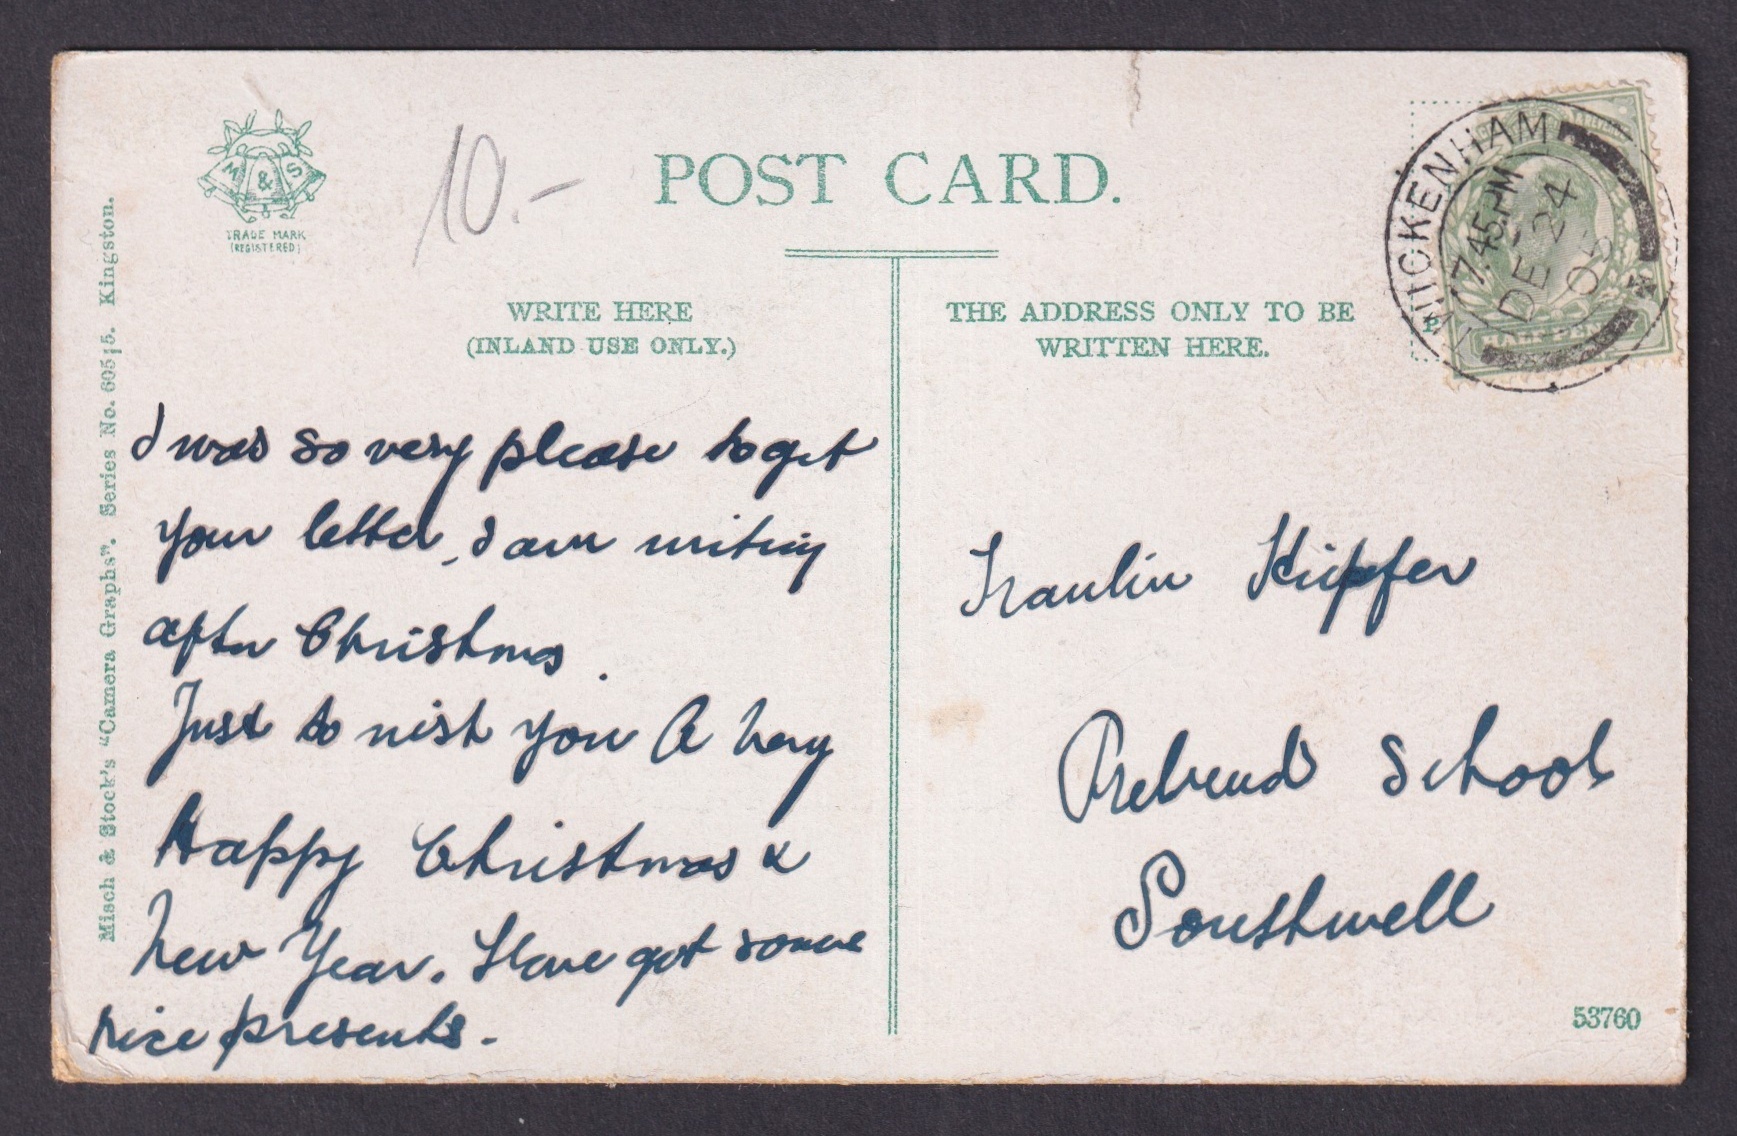 M & S
TRADE MARK
(REGISTERED)
10.-
POST CARD.
WRITE HERE
(INLAND USE ONLY.)
THE ADDRESS ONLY TO BE
WRITTEN HERE.
TWICKENHAM
7.45 PM
DE 24
HALFPENNY
Misch & Stock's "Camera Graphs". Series No. 605/5. Kingston.
I was so very please to get
your letter, I am writing
after Christmas.
Just to wish you A Very
Happy Christmas &
New Year. Have got some
nice presents.
Fraulin Küpfer
School
Southwell
53760